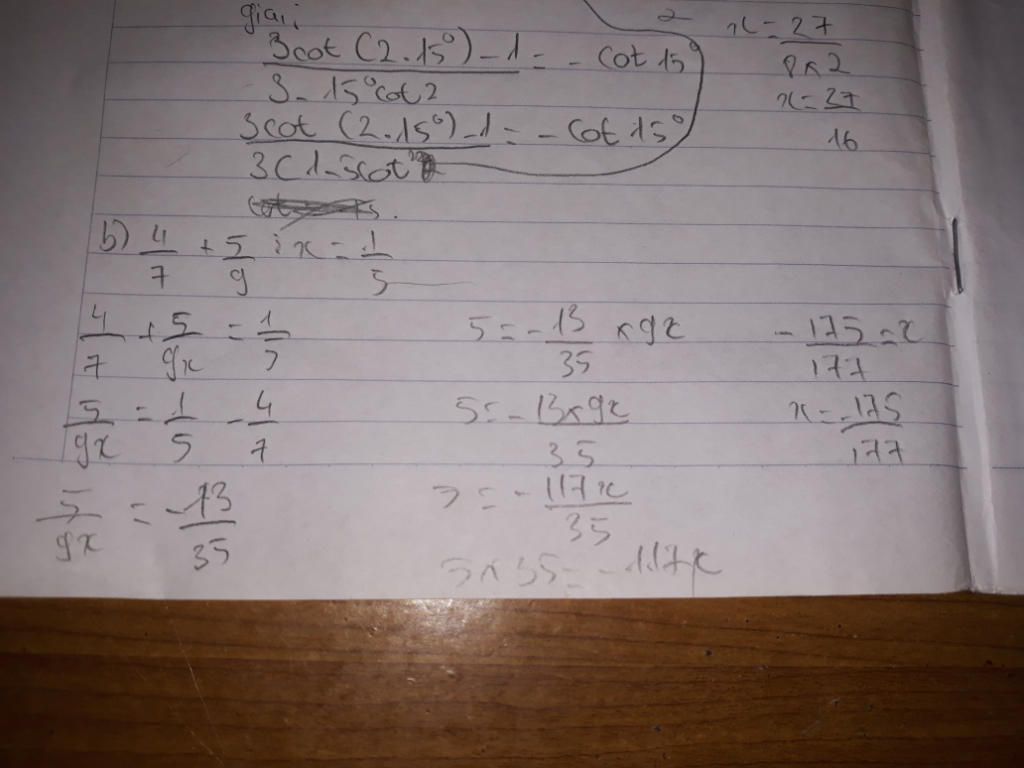 giải
3cot (2.15°) - 1 / 3 - 15°cot2 = - cot 15°
x = 27 / 8 x 2
3cot (2.15°) - 1 / 3(1 - 5cot = - cot 15°
x = 27 / 16
b) 4/7 + 5/9 : x = 1/5
4/7 + 5/9x = 1/5
5/9x = 1/5 - 4/7
5/9x = -13/35
5 = -13/35 x 9x
5 = -13 x 9x / 35
5 = -117x / 35
5 x 35 = -117x
-175/177 = x
x = -175/177